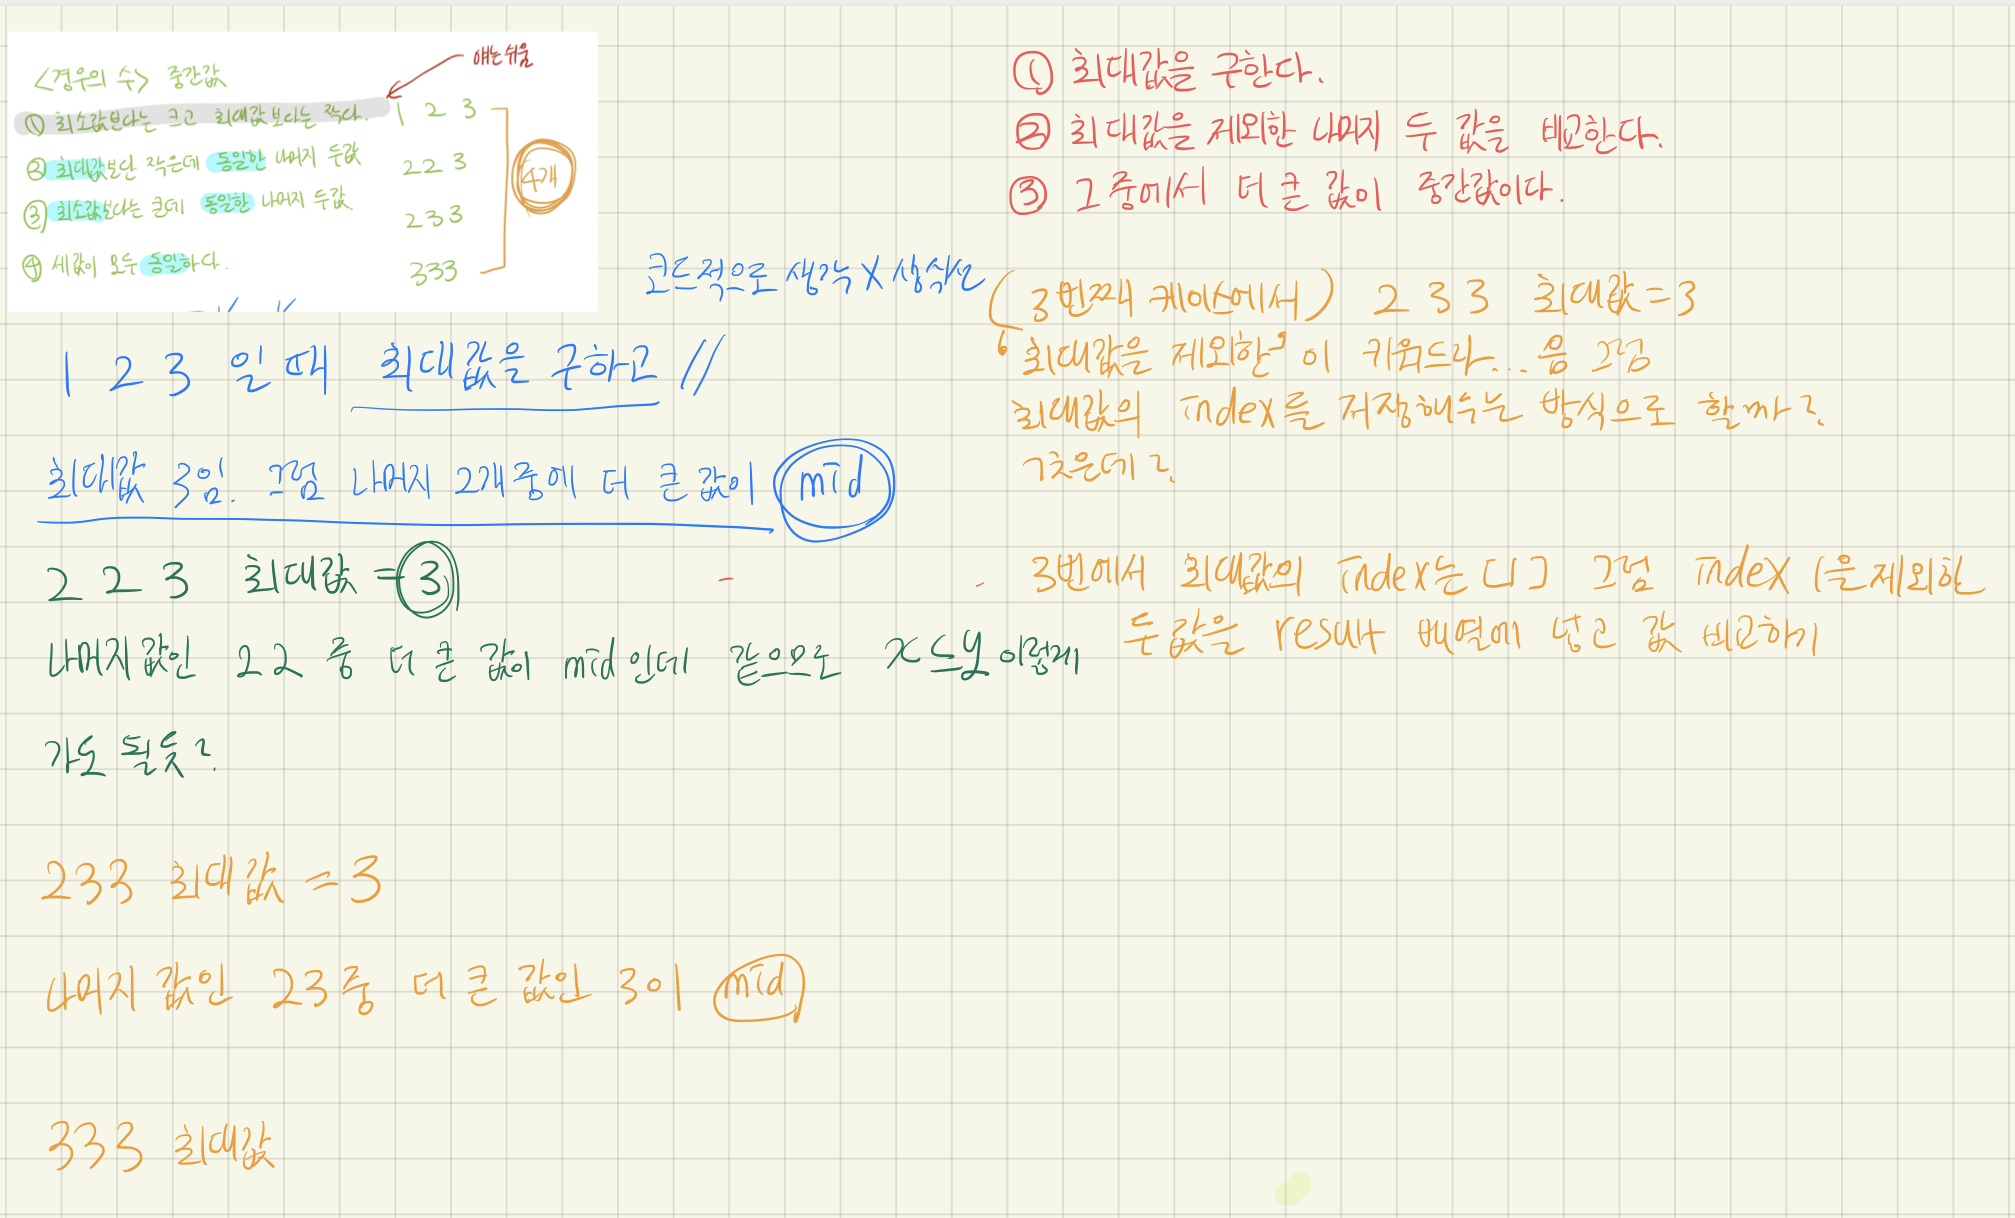 <경우의 수> 중간값
얘는 쉬움
① 최소값보다는 크고 최대값보다는 작다. 1 2 3
② 최대값보단 작은데 동일한 나머지 두값 2 2 3
③ 최소값보다는 큰데 동일한 나머지 두값. 2 3 3
④ 세값이 모두 동일하다. 333
4개
① 최대값을 구한다.
② 최대값을 제외한 나머지 두 값을 비교한다.
③ 그 중에서 더 큰 값이 중간값이다.
코드적으로 생각 X 상식선
1 2 3 일 때 최대값을 구하고 //
최대값 3임. 그럼 나머지 2개 중에 더 큰 값이 mid
2 2 3 최대값 = 3
나머지 값인 2 2 중 더 큰 값이 mid 인데 같으므로 x ≤ y 이렇게
가도 될듯?
233 최대값 = 3
나머지 값인 23 중 더 큰 값인 3이 mid
333 최대값
(3번째 케이스에서) 2 3 3 최대값 = 3
"최대값을 제외한" 이 키워드라... 음 그럼
최대값의 index를 저장해두는 방식으로 할까?
괜춘은데?
3번에서 최대값의 index는 [1] 그럼 index 1을 제외한
두 값을 result 배열에 넣고 값 비교하기